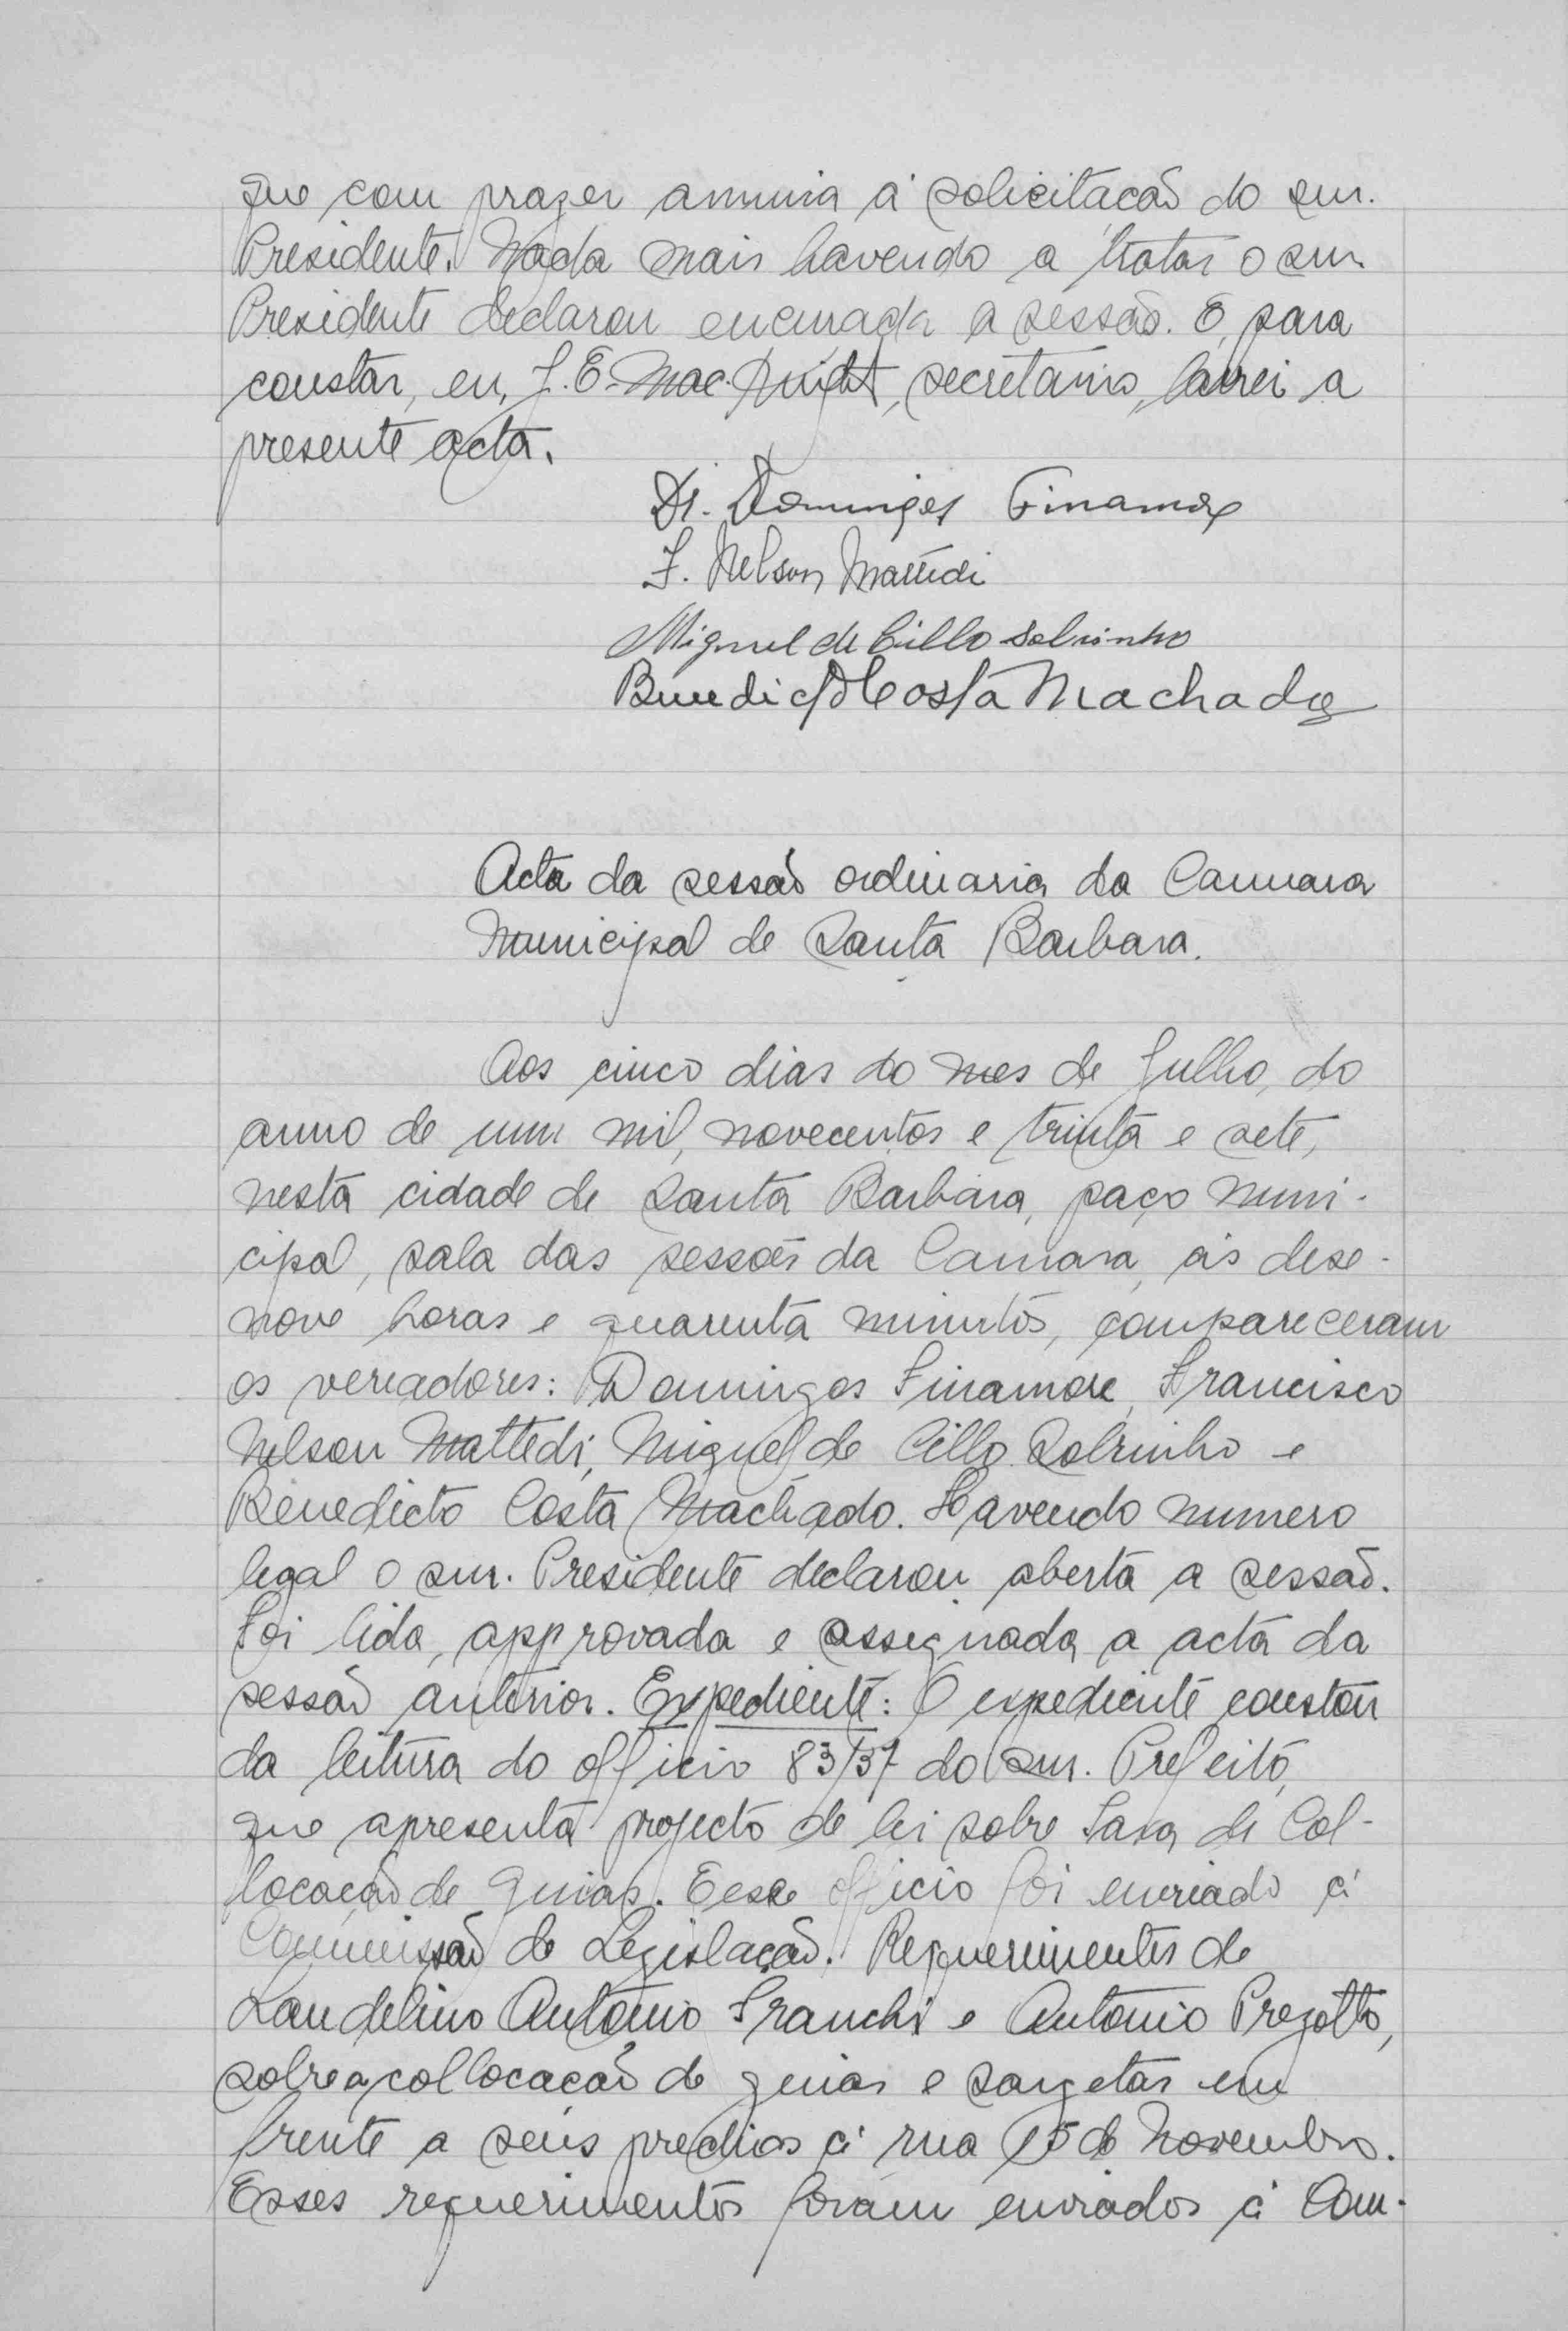 que com prazer annuia á solicitação do snr.
Presidente. Nada mais havendo a tratar o snr.
Presidente declarou encerrada a sessão. E, para
constar, eu, J. E. Mac-Knight, secretario, lavrei a
presente acta.
Dr. Domingos Finamore
F. Nelson Mattedi
Miguel de Cillo Sobrinho
Benedicto Costa Machado
Acta da sessão ordinaria da Camara
Municipal de Santa Barbara.
Aos cinco dias do mes de Julho, do
anno de um mil, novecentos e trinta e sete,
nesta cidade de Santa Barbara, paço muni-
cipal, sala das sessões da Camara, ás dese-
nove horas e quarenta minutos, compareceram
os vereadores: Domingos Finamore, Francisco
Nelson Mattedi, Miguel de Cillo Sobrinho e
Benedicto Costa Machado. Havendo numero
legal o snr. Presidente declarou aberta a sessão.
Foi lida, approvada e assignada a acta da
sessão anterior. Expediente: O expediente constou
da leitura do officio 83/37 do snr. Prefeito,
que apresenta projecto de lei sobre Taxa de Col-
locação de Guias. Esse officio foi enviado á
Commissão de Legislação. Requerimentos de
Laudelino Antonio Franchi e Antonio Pregotto,
sobre a collocação de guias e sargetas em
frente a seus predios á rua 15 de Novembro.
Esses requerimentos foram enviados á Com-